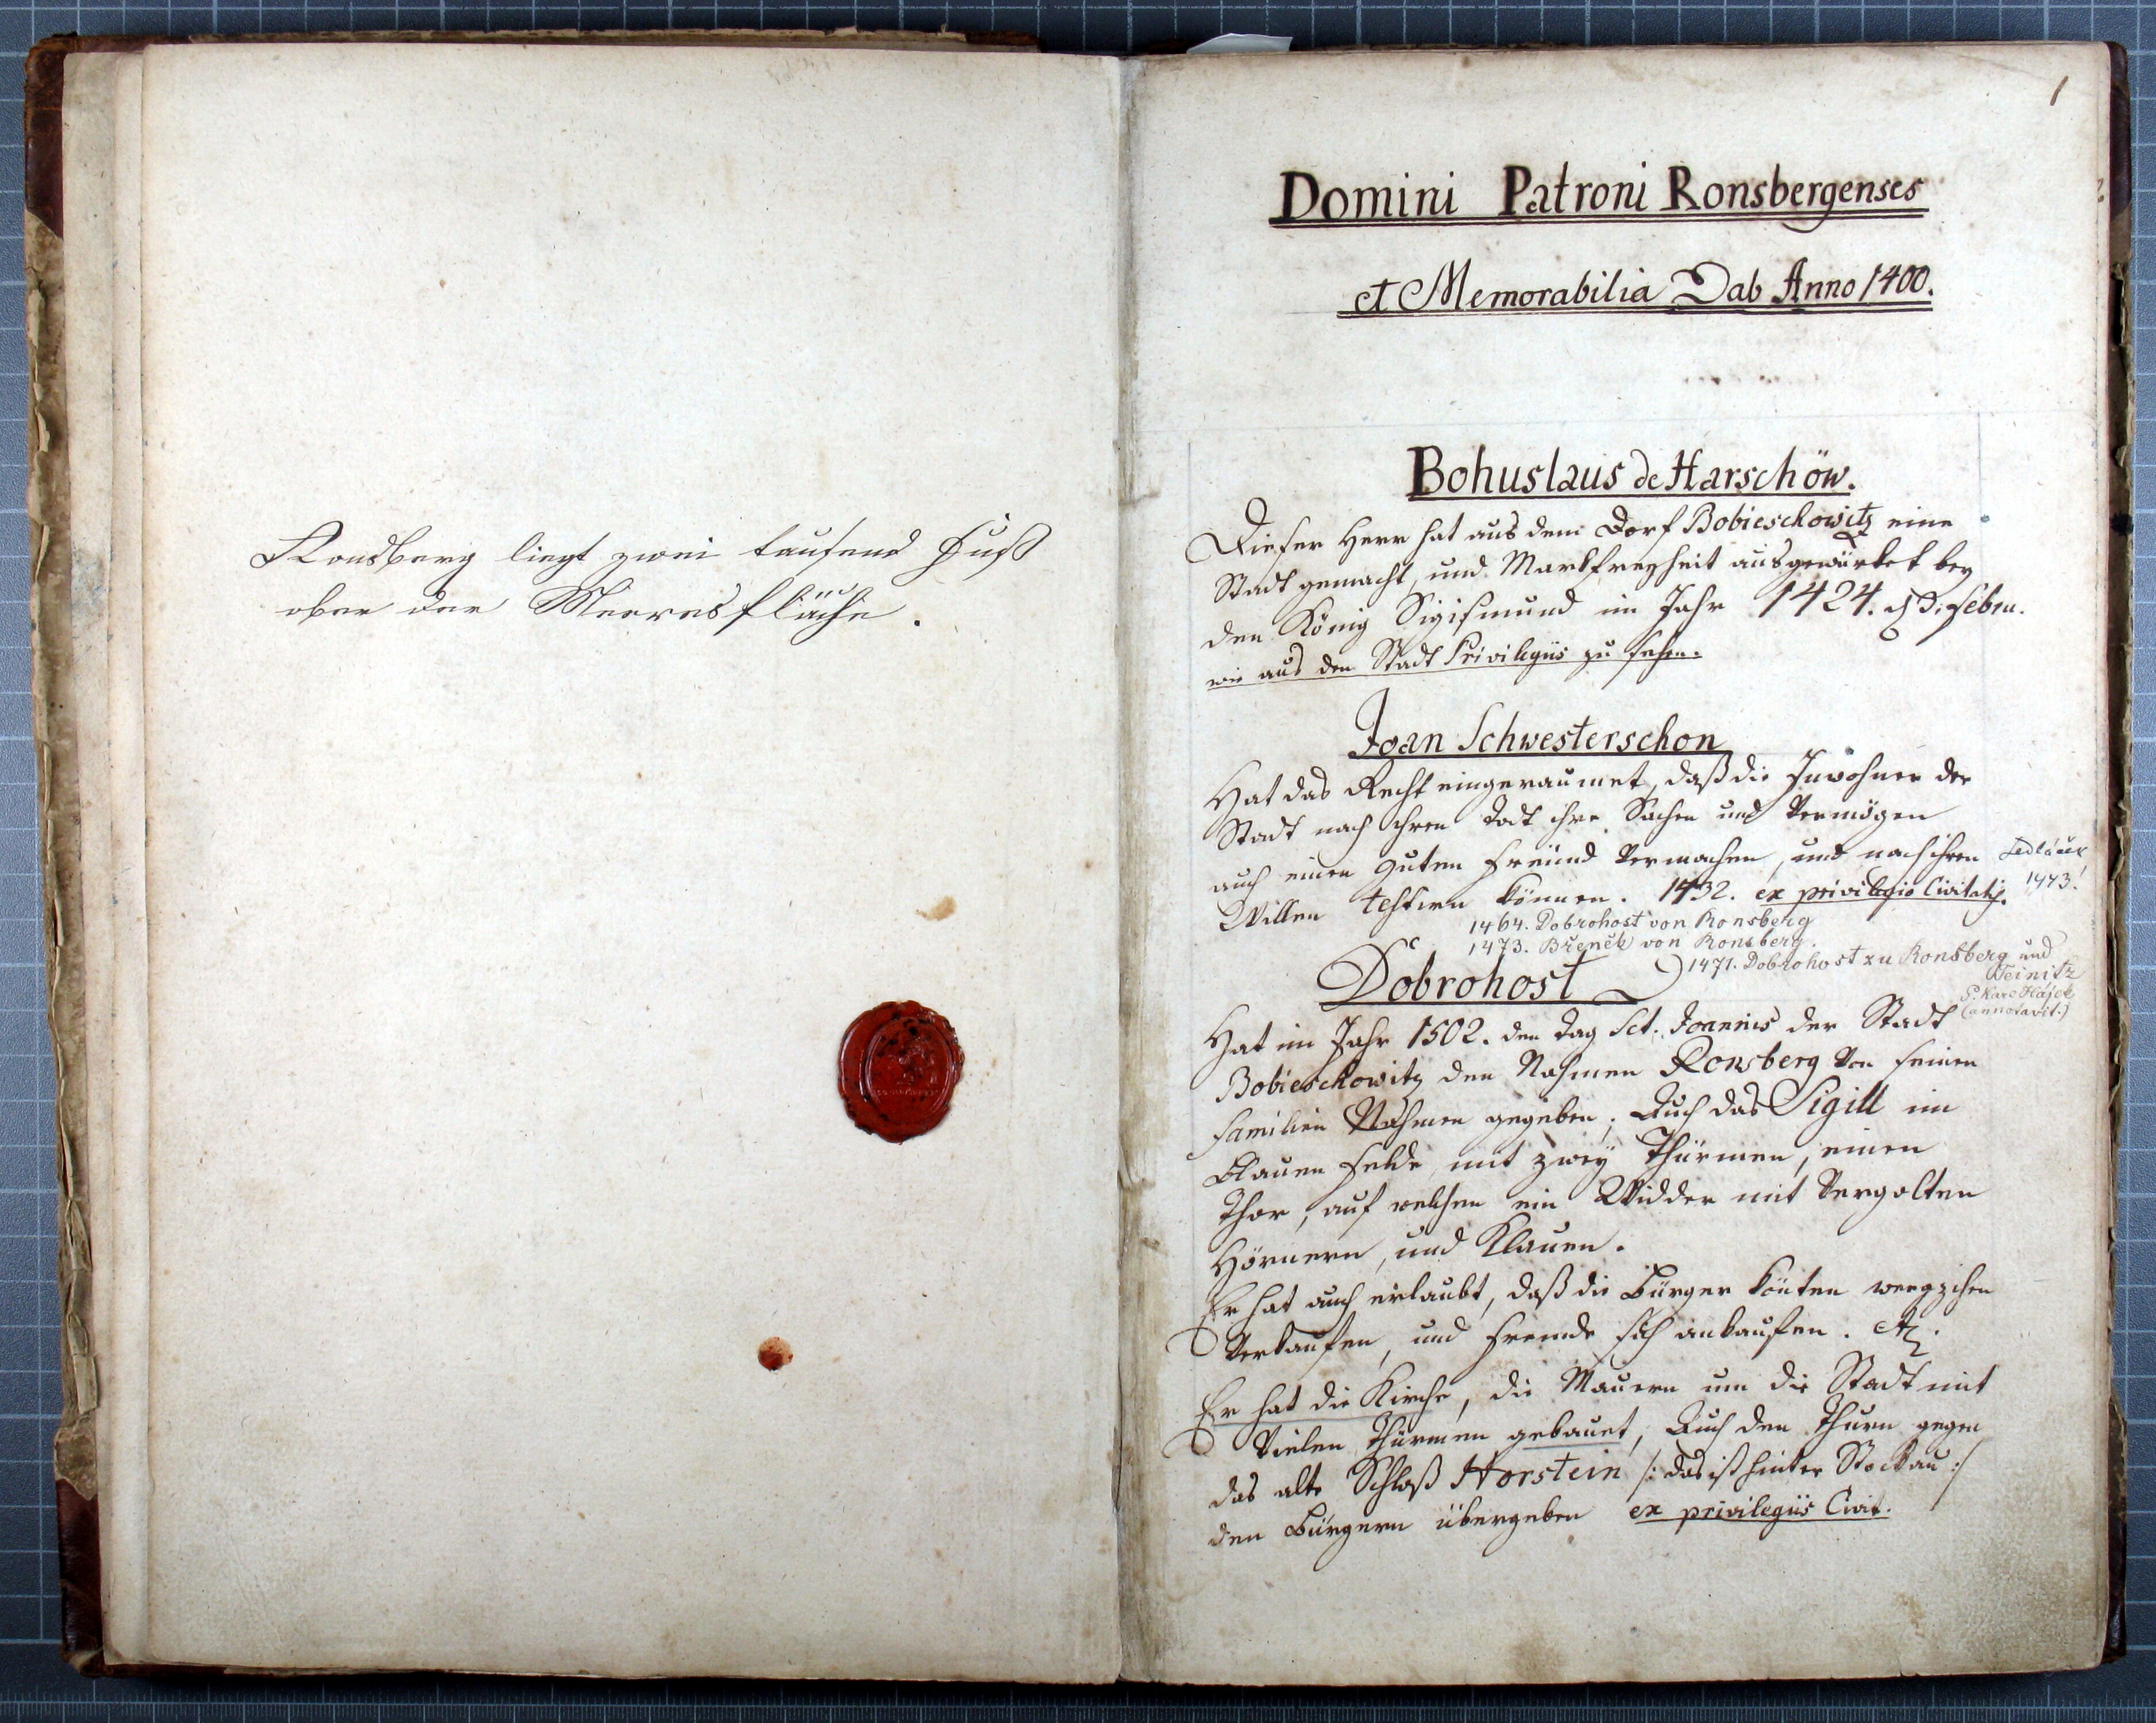 Ronsberg liegt zwei tausend Fuß
ober der Meeresfläche.
1
Domini Patroni Ronsbergenses
et Memorabilia Dab Anno 1400.
Bohuslaus de Harschöw.
Dieser Herr hat aus dem Dorf Bobieschowitz eine
Stadt gemacht, und Markfreyheit ausgewürket bey
den König Sigismund im Jahr 1424. d 3. Febru.
wie aus den Stadt Privilegiis zu sehen.
Joan Schwesterschon
Hat das Recht eingeraumet, daß die Inwohner der
Stadt nach ihren Todt ihre Sachen und Vermögen
auch einen guten Freünd Vermachen, und nach ihren
Willen testiren können. 1432. ex privilegio Civitatis.
Sedláček
1473!
1464. Dobrohost von Ronsberg
1473. Břeněk von Ronsberg.
1471. Dobrohost zu Ronsberg und
Teinitz
P. Karl Hájek
(annotavit.)
Dobrohost
Hat im Jahr 1502. den Tag Sct. Joannis der Stadt
Bobieschowitz den Nahmen Ronsberg Von seinen
Familien Nahmen gegeben; Auch das Sigill im
Blauen Felde mit zwey Thürmen, einen
Thor, auf welchen ein Widder mit Vergolten
Hörnern, und Klauen.
Er hat auch erlaubt, daß die Bürger könten wegzihen
Verkaufen, und Fremde sich ankaufen.
Er hat die Kirche, die Mauern um die Stadt mit
Vielen Thürmen gebauet, Auch den Thurn gegen
das alte Schloß Horstein /: das ist hinter Stockau :/
den Bürgern übergeben ex privilegiis Civit.